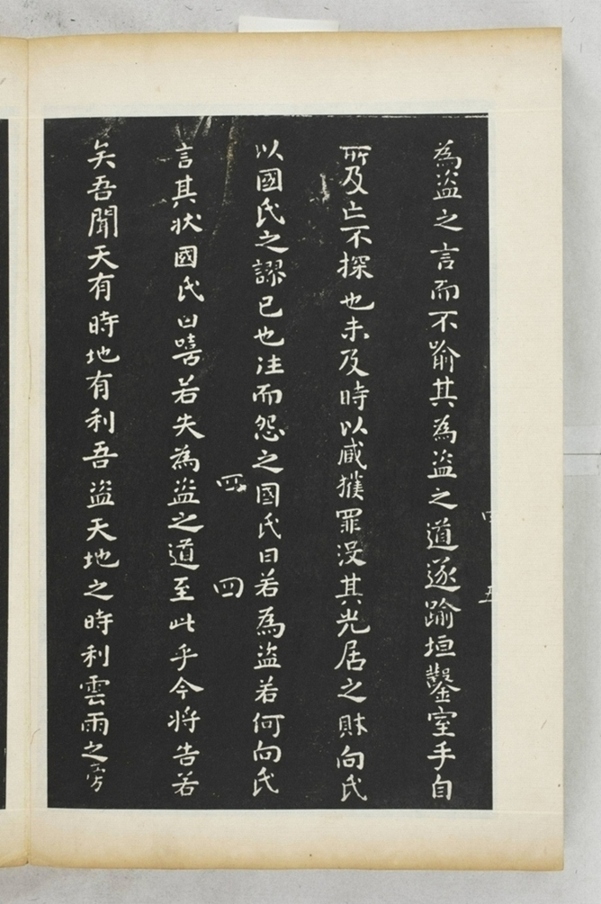 為盜之言而不喻其為盜之道遂踰垣鑿室手自
所及亡不探也未及時以臧獲罪没其先居之財向氏
以國氏之謬已也往而怨之國氏曰若為盜若何向氏
四 四
言其狀國氏曰嘻若失為盜之道至此乎今將告若
矣吾聞天有時地有利吾盜天地之時利雲雨之